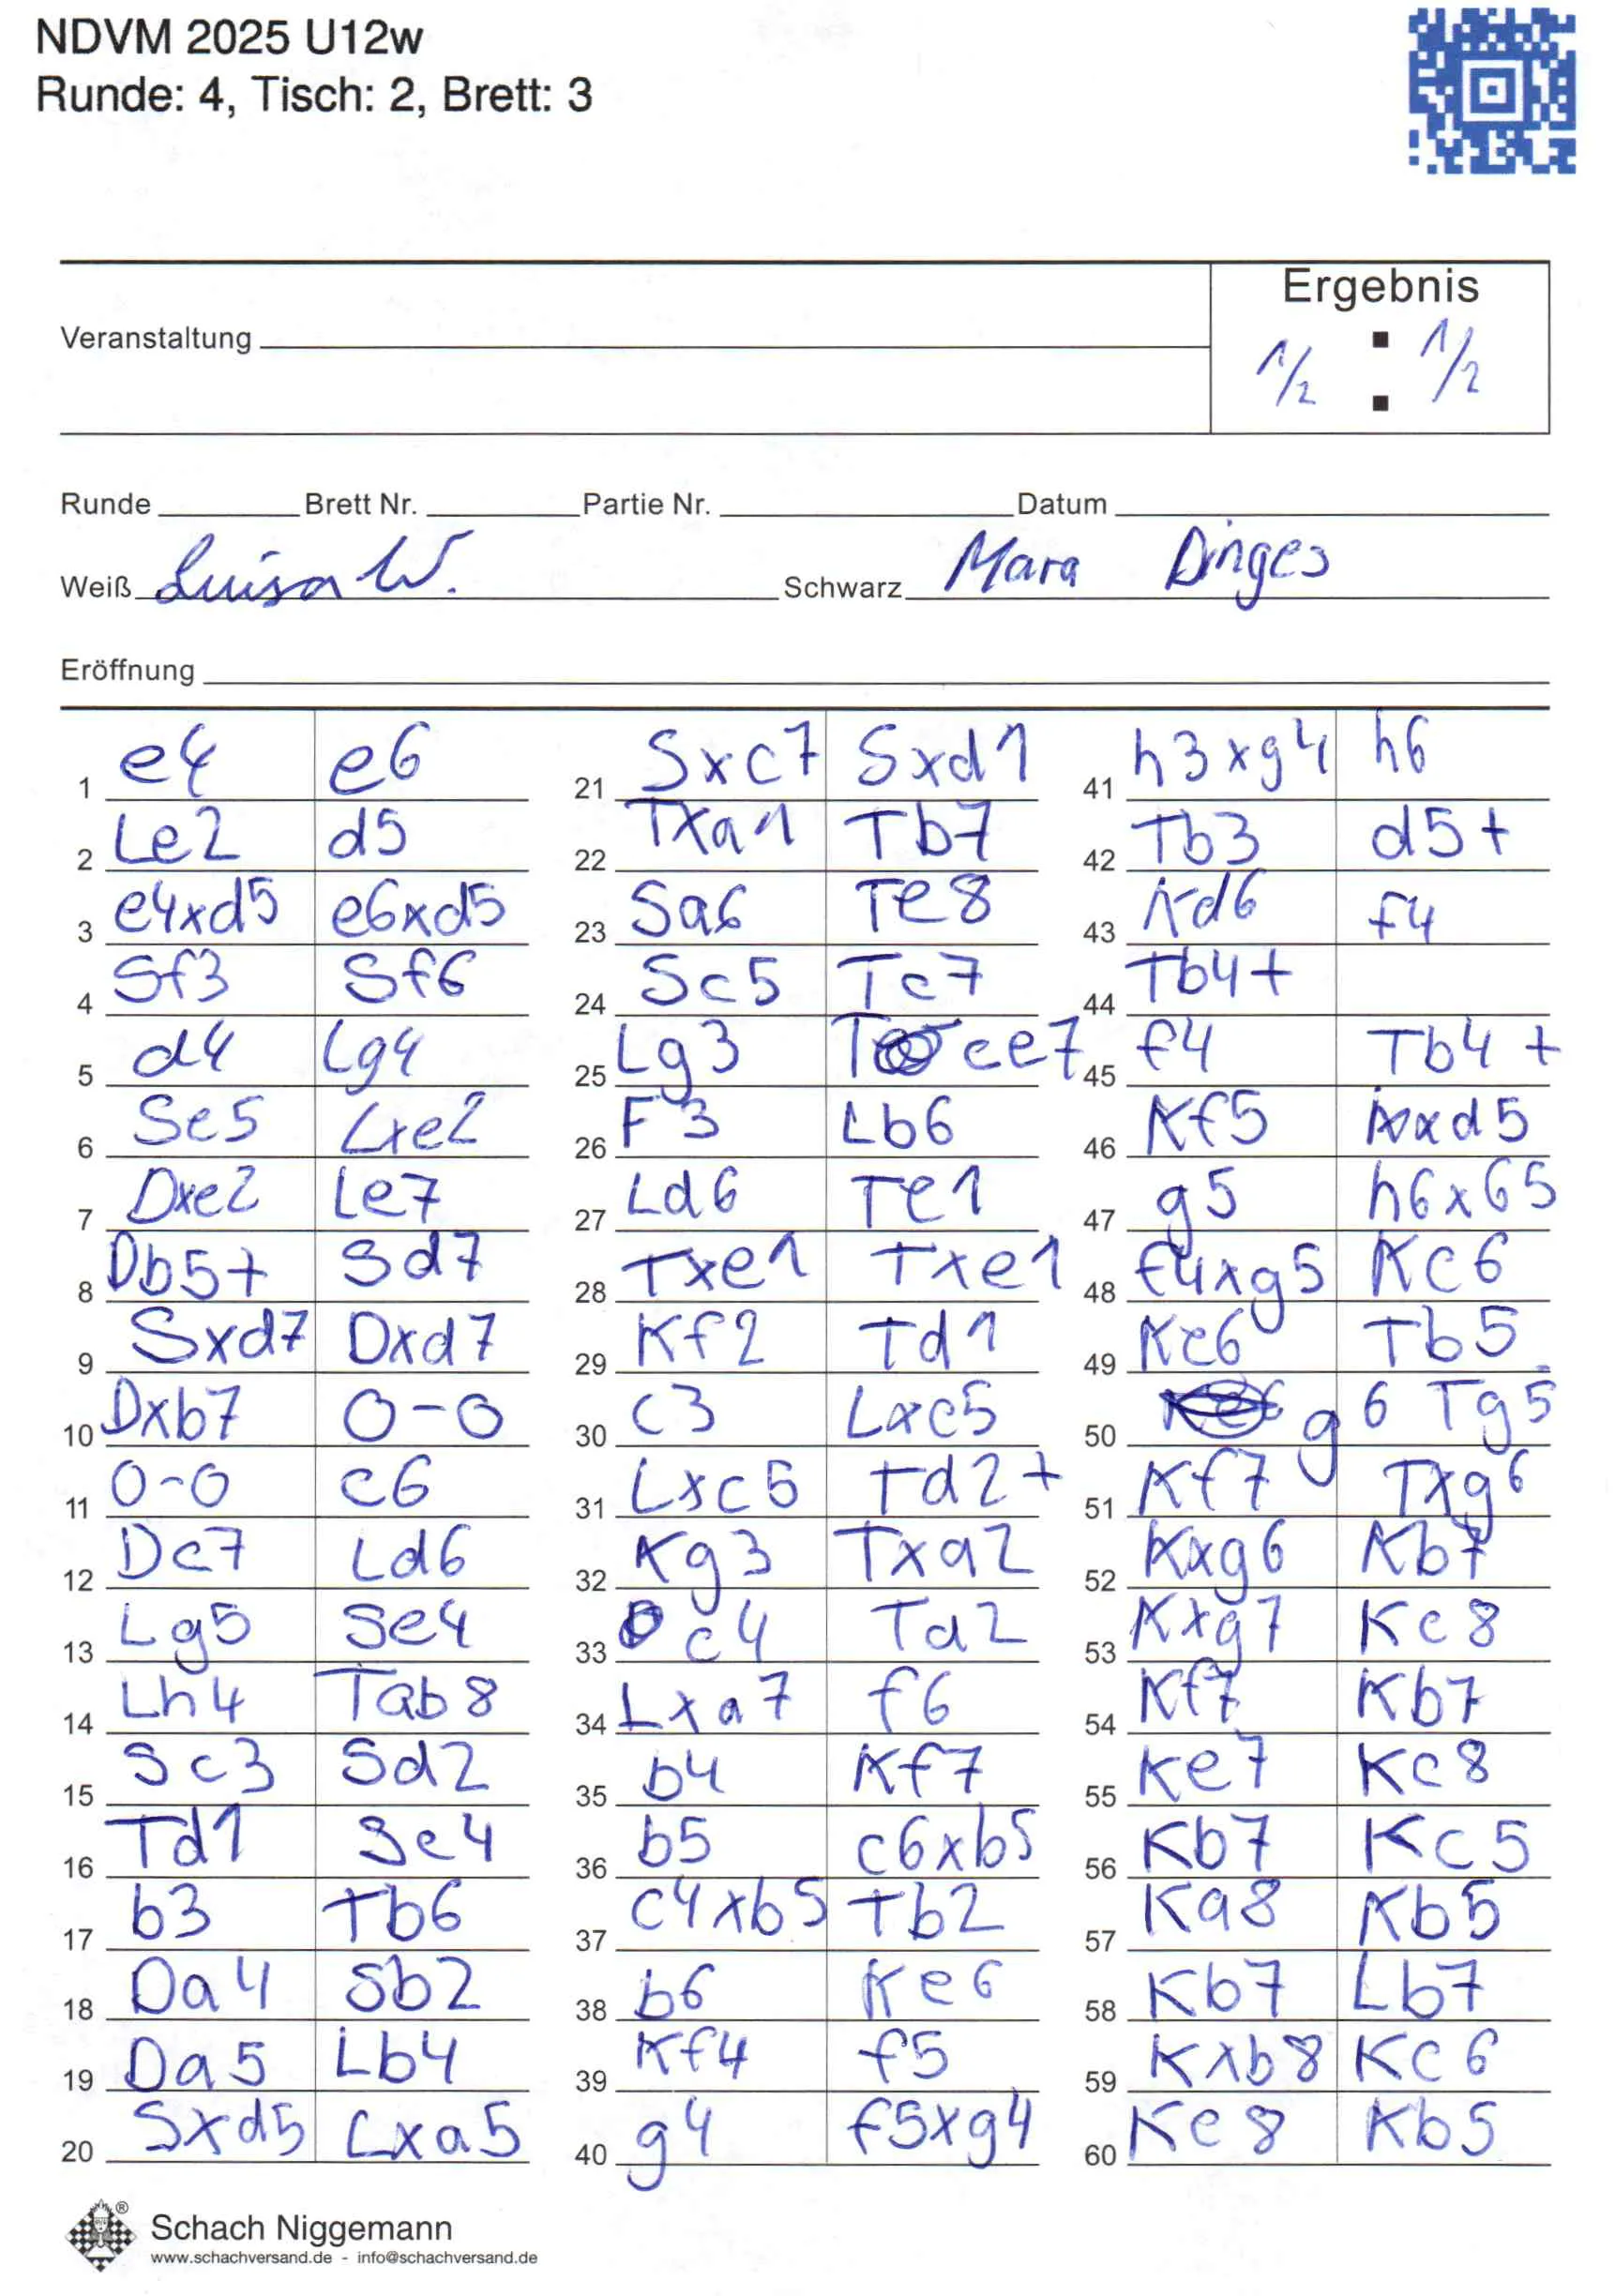 NDVM 2025 U12w
Runde: 4, Tisch: 2, Brett: 3
Ergebnis
Veranstaltung
1/2 : 1/2
Runde Brett Nr. Partie Nr. Datum
Weiß Luisa W. Schwarz Mara Dinges
Eröffnung
1 e4 e6
2 Le2 d5
3 e4xd5 e6xd5
4 Sf3 Sf6
5 d4 Lg4
6 Se5 Lxe2
7 Dxe2 Le7
8 Db5+ Sd7
9 Sxd7 Dxd7
10 Dxb7 0-0
11 0-0 c6
12 Dc7 Ld6
13 Lg5 Se4
14 Lh4 Tab8
15 Sc3 Sd2
16 Td1 Se4
17 b3 Tb6
18 Da4 Sb2
19 Da5 Lb4
20 Sxd5 Lxa5
21 Sxc7 Sxd1
22 Txa1 Tb7
23 Sa6 Te8
24 Sc5 Tc7
25 Lg3 Tce7
26 F3 Lb6
27 Ld6 Te1
28 Txe1 Txe1
29 Kf2 Td1
30 c3 Lxc5
31 Lxc5 Td2+
32 Kg3 Txa2
33 c4 Ta2
34 Lxa7 f6
35 b4 Kf7
36 b5 c6xb5
37 c4xb5 Tb2
38 b6 Ke6
39 Kf4 f5
40 g4 f5xg4
41 h3xg4 h6
42 Tb3 d5+
43 Kd6 f4
44 Tb4+
45 f4 Tb4+
46 Kf5 Kxd5
47 g5 h6x65
48 f4xg5 Kc6
49 Ke6 Tb5
50 g6 Tg5
51 Kf7 Txg6
52 Kxg6 Kb7
53 Kxg7 Kc8
54 Kf7 Kb7
55 Ke7 Kc8
56 Kb7 Kc5
57 Ka8 Kb5
58 Kb7 Lb7
59 Kxb8 Kc6
60 Kc8 Kb5
Schach Niggemann
www.schachversand.de - info@schachversand.de